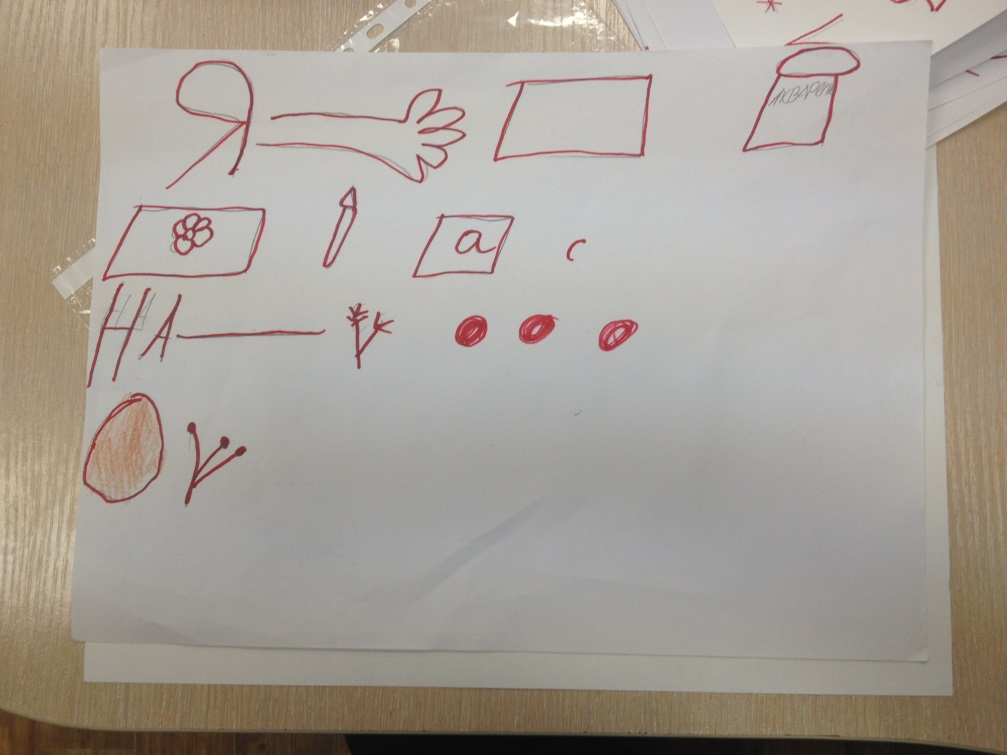 Я АКВАРел
а с
НА